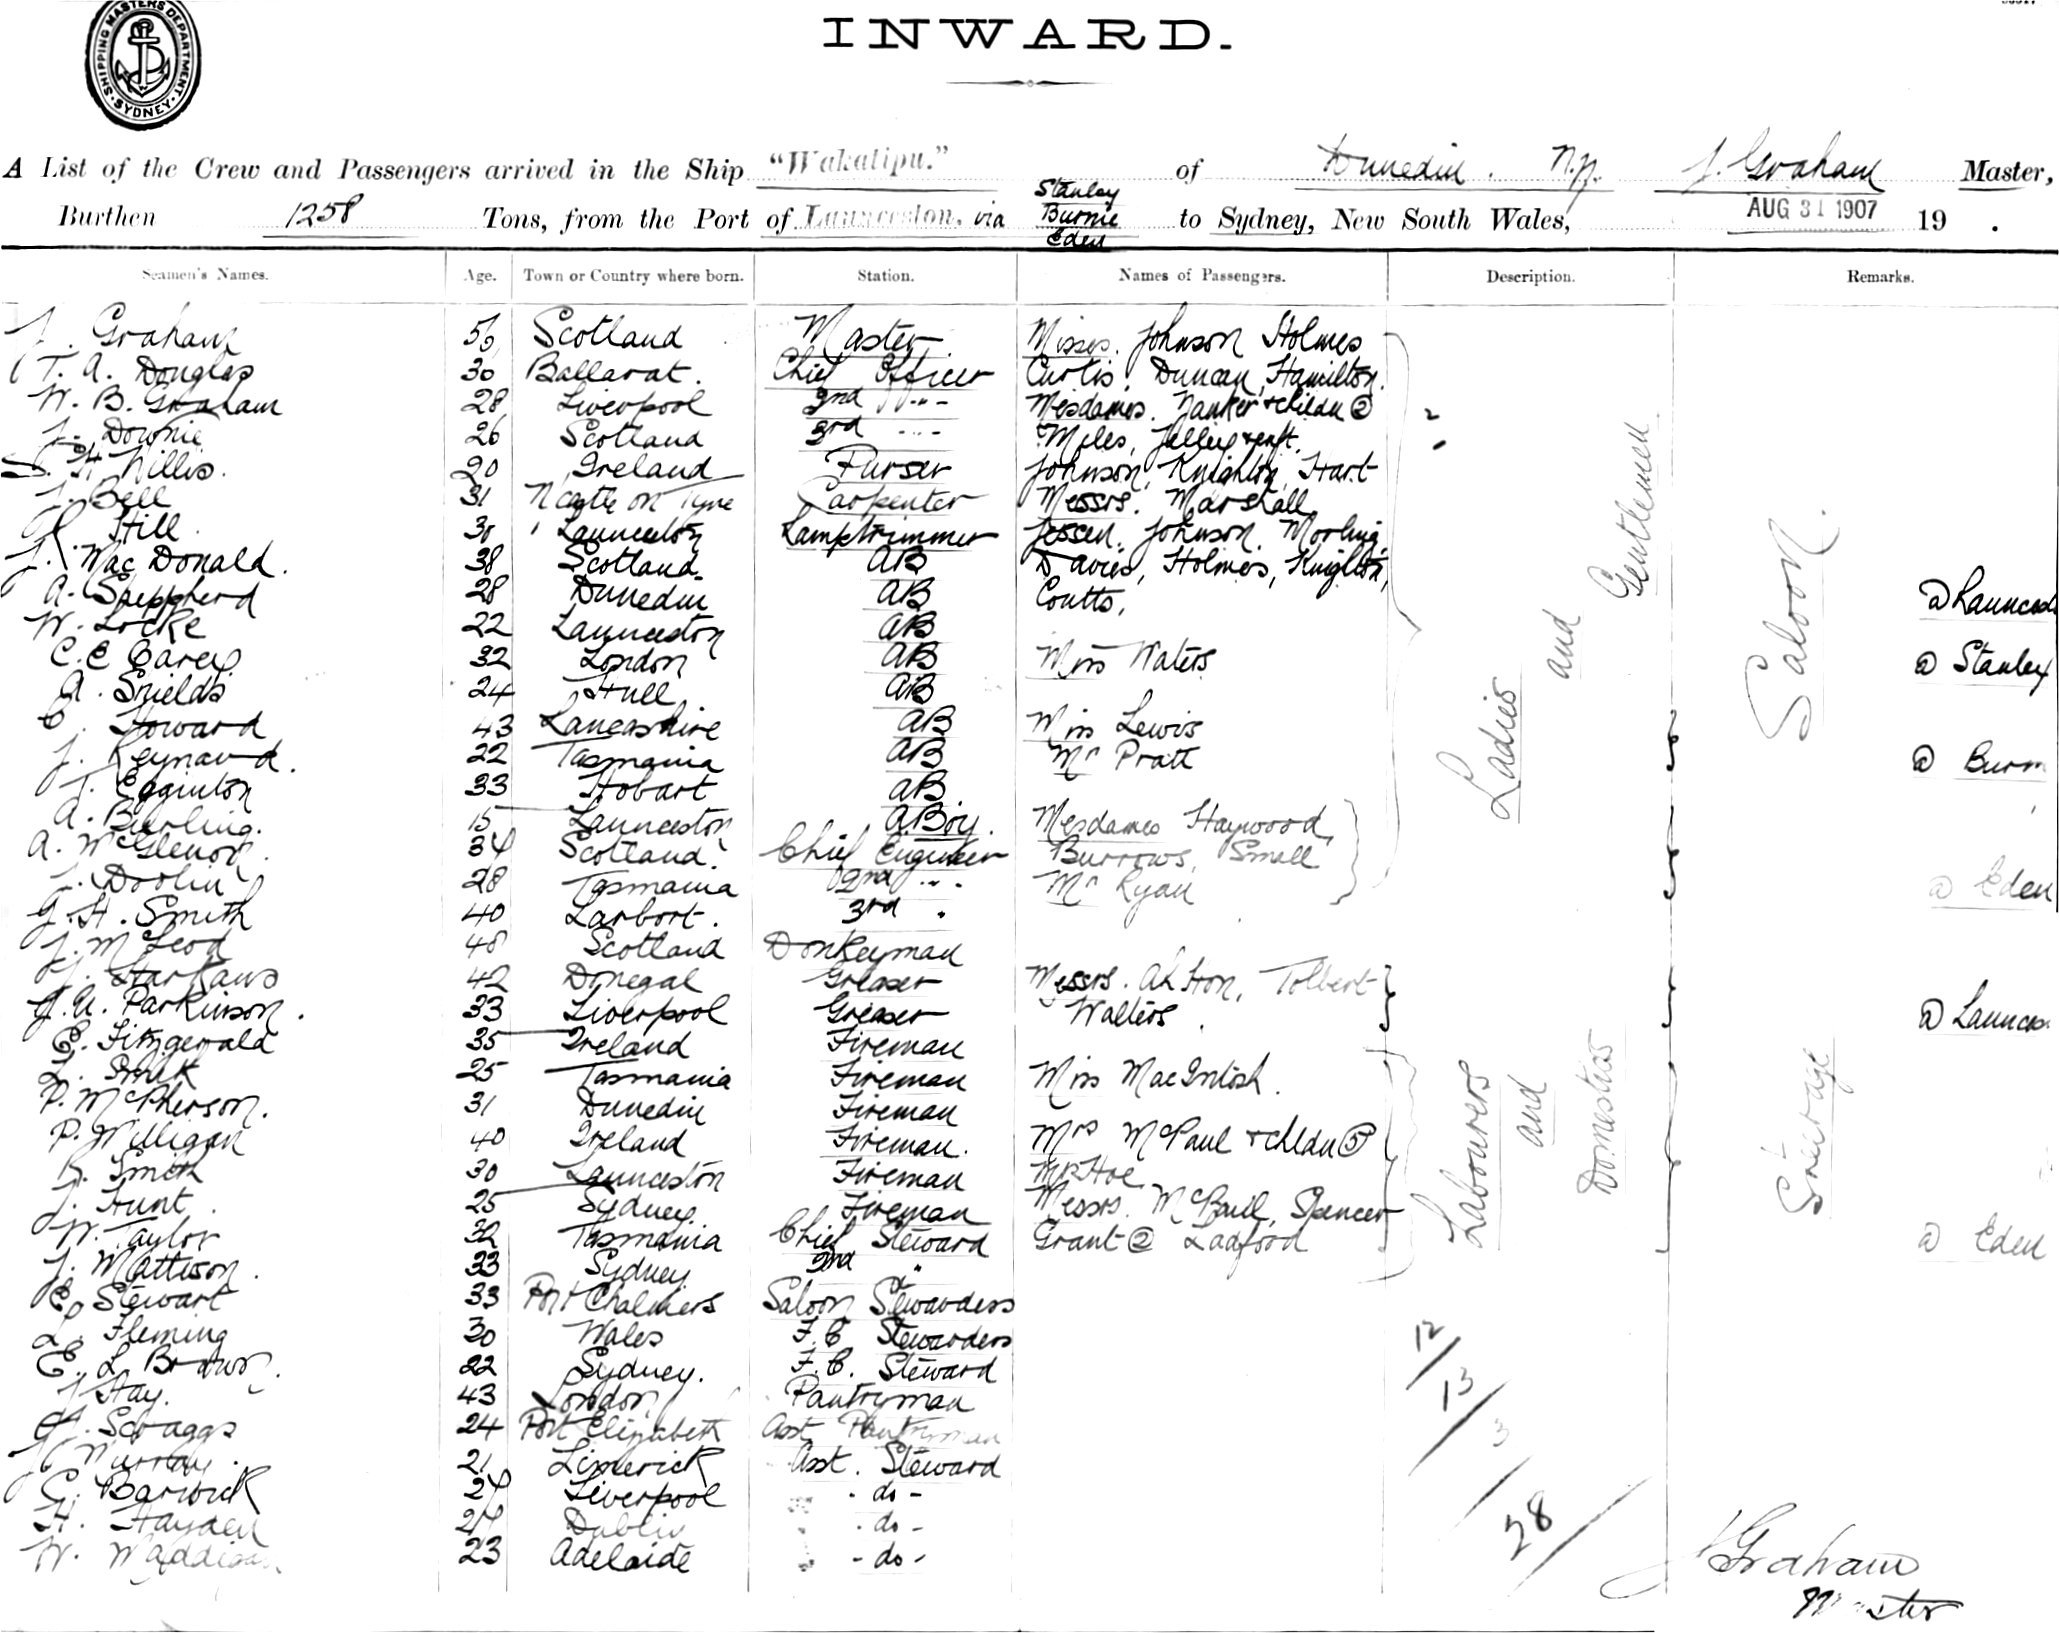 SHIPPING MASTERS DEPARTMENT
SYDNEY
INWARD.
A List of the Crew and Passengers arrived in the Ship "Wakatipu." of Dunedin. N.Z. J. Graham Master,
Burthen 1258 Tons, from the Port of Launceston, via Stanley Burnie Eden to Sydney, New South Wales, AUG 31 1907 19 .
Seamen's Names. Age. Town or Country where born. Station. Names of Passengers. Description. Remarks.
J. Graham Scotland Master Misses. Johnson Holmes
T. A. Douglas 30 Ballarat. Chief Officer Curtis, Duncan, Hamilton.
W. B. Graham 28 Liverpool 2nd " Mesdames. & childn 2
J. Downie 26 Scotland 3rd " Miles,
H. Willis. 20 Ireland Purser Johnson, Knighton, Hart
J. Bell 31 N'castle on Tyne Carpenter Messrs. Marshall
Hill 30 Launceston Lamptrimmer Jessen, Johnson, Morling,
J. MacDonald. 38 Scotland AB Davies, Holmes, Knighton,
A. Sheppherd 28 Dunedin AB Coutts, @ Launces
W. Locke 22 Launceston AB
C. E Carey 32 London AB Miss Waters @ Stanley
A. Shields 24 Hull AB
C. Howard 43 Lancashire AB Miss Lewis
J. Reynard. 22 Tasmania AB Mr Pratt @ Burn
T. Eginton 33 Hobart AB
A. Burling. 15 Launceston A Boy. Mesdames Haywood,
A. 34 Scotland. Chief Engineer Burrows, Small
J. Doolin 28 Tasmania 2nd " Mr Ryan @ Eden
G. H. Smith 40 Larbort. 3rd "
J. McLeod 48 Scotland Donkeyman
J. 42 Donegal Greaser Messrs. Ah Hon, Tolbert
J. A. Parkinson. 33 Liverpool Greaser Walters. @ Launces
E. Fitzgerald 35 Ireland Fireman
25 Tasmania Fireman Miss MacIntosh.
P. McPherson. 31 Dunedin Fireman
P. Milligan 40 Ireland Fireman. Mrs McPaul & chldn 5
Smith 30 Launceston Fireman Mr Hoe
J. Hunt. 25 Sydney. Fireman Messrs. McPaul, Spencer
W. Taylor 32 Tasmania Chief Steward Grant 2 Ladford @ Eden
J. Mattison. 33 Sydney. 2nd "
E. Stewart 33 Port Chalmers Saloon Stewardess
L. Fleming 30 Wales F. C. Stewardess
E. L. Brown. 22 Sydney. F. C. Steward
J. Hay. 43 London Pantryman
Scraggs 24 Port Elizabeth Asst Pantryman
J. Murray. 21 Limerick Asst. Steward
C. Barwick 24 Liverpool - do -
H. Hayden 24 Dublin - do -
W. Waddigan 23 Adelaide - do -
Ladies and Gentlemen
Saloon.
Labourers and Domestics
Steerage
12/13/3/28
J Graham
Master